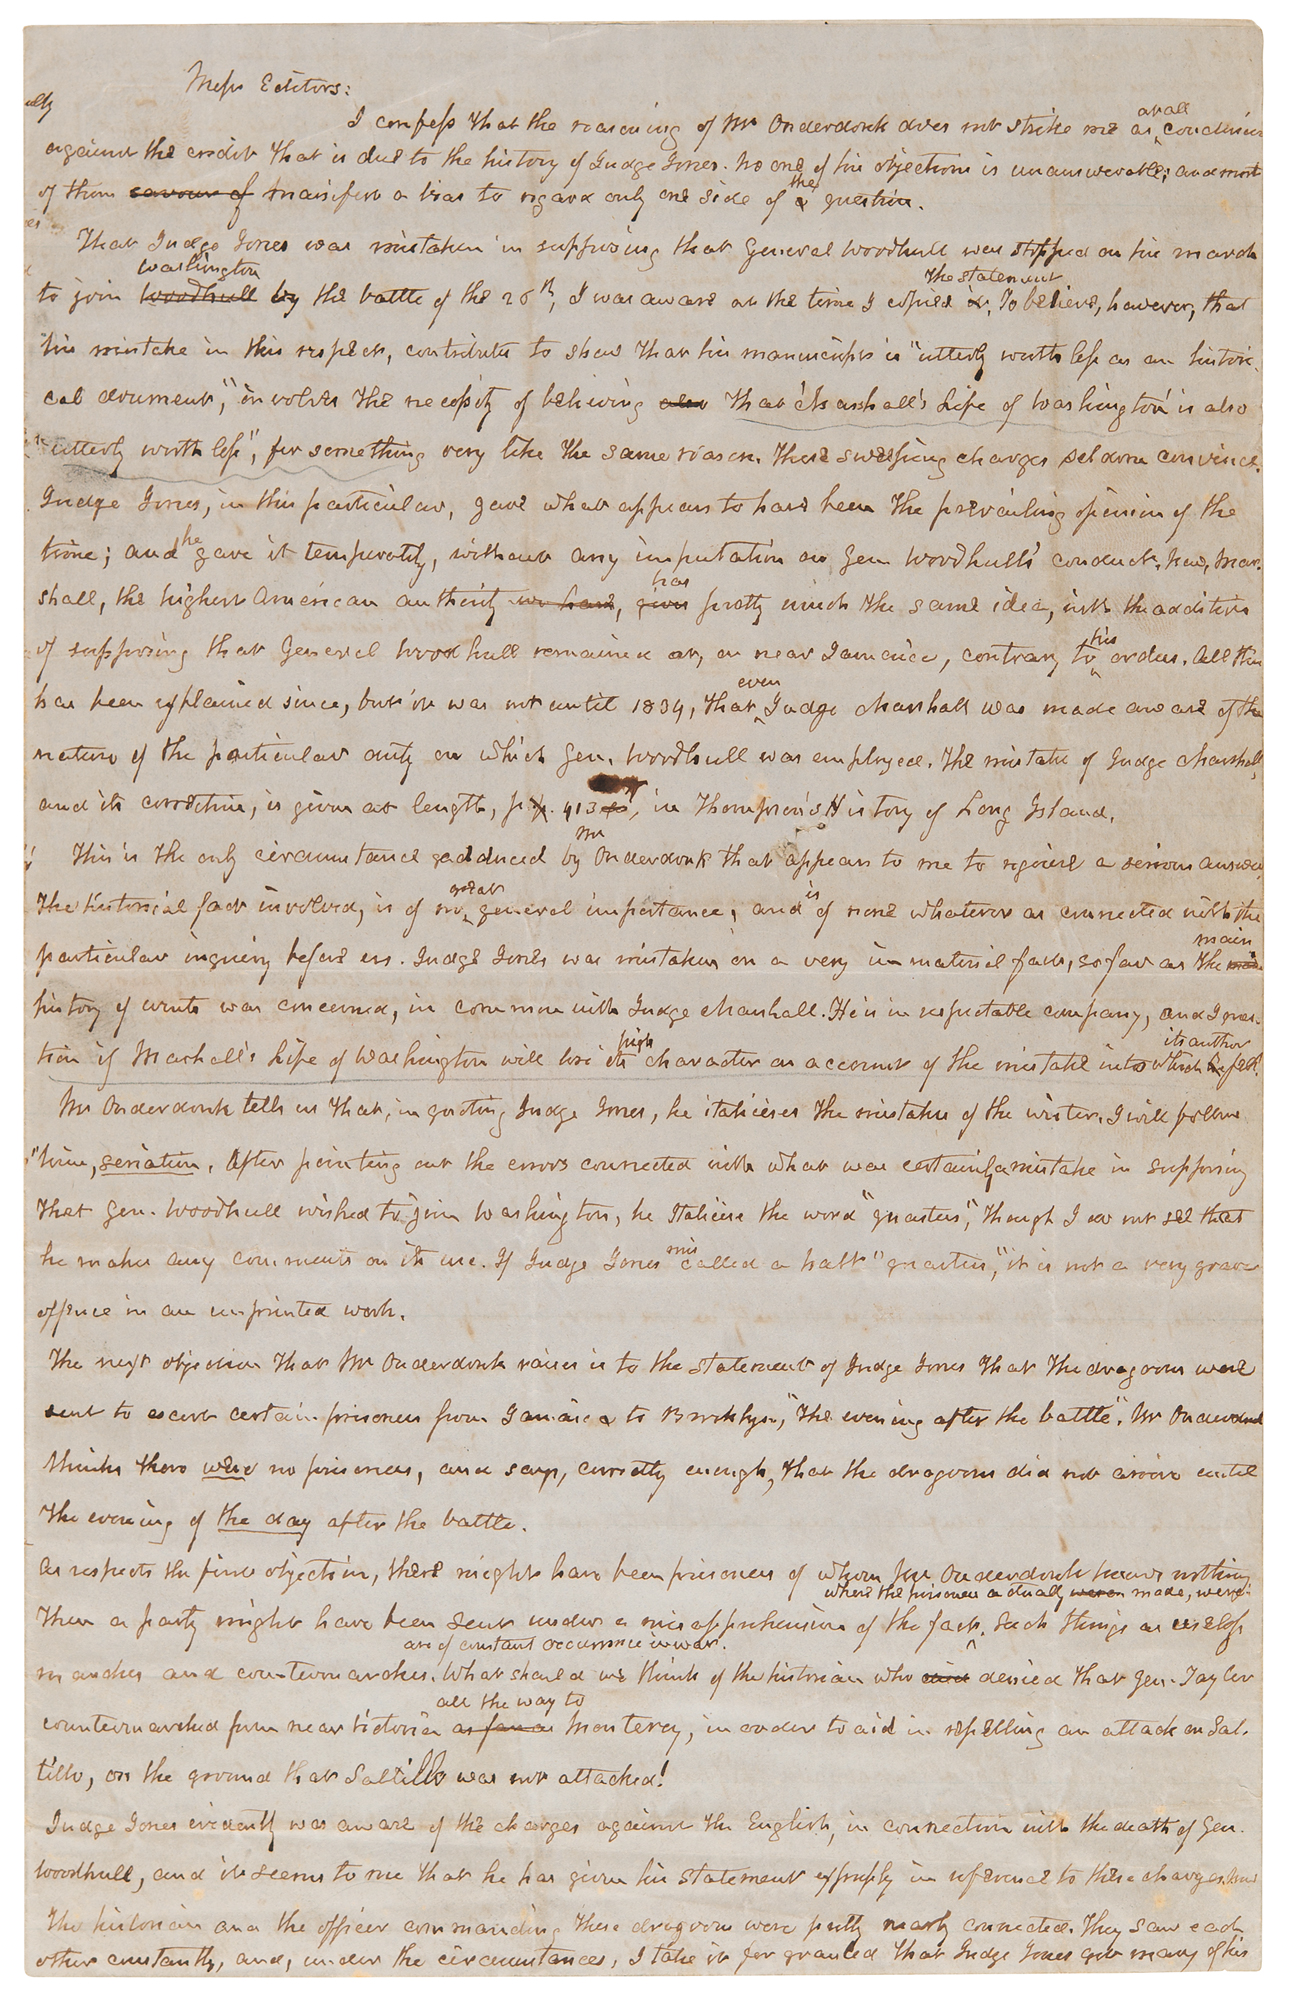 Messrs Editors:
I confess that the reasoning of Mr Onderdonk does not strike me as at all conclusive
against the credit that is due to the history of Judge Jones. No one of his objections is unanswerable; and most
of them savour of manifest a bias to regard only one side of a the question.
That Judge Jones was mistaken in supposing that General Woodhull was stopped on his march
to join Woodhull Washington by the battle of the 26th, I was aware at the time I copied it. the statement To believe, however, that
his mistake in this respect, contributes to shew that his manuscript is "utterly worthless as an histori-
cal document," involves the necessity of believing also that 'Marshall's Life of Washington' is also
"utterly worthless", for something very like the same reason. These sweeping charges seldom convince.
Judge Jones, in this particular, gave what appears to have been the prevailing opinion of the
time; and he gave it temperately, without any imputation on Gen Woodhull's conduct. Now, Mar-
shall, the highest American authority we have, gives has pretty much the same idea, with the addition
of supposing that General Woodhull remained at, or near Jamaica, contrary to his orders. All this
has been explained since, but it was not until 1834, that even Judge Marshall was made aware of the
nature of the particular duty on which Gen. Woodhull was employed. The mistake of Judge Marshall,
and its correction, is given at length, p. 413, in Thompson's History of Long Island.
This is the only circumstance adduced by Mr Onderdonk that appears to me to require a serious answer.
The historical fact involved, is of no great general importance, and is of none whatever as connected with the
particular inquiry before us. Judge Jones was mistaken on a very immaterial fact, so far as the main
history of events was concerned, in common with Judge Marshall. He is in respectable company, and I ques-
tion if Marshall's Life of Washington will lose its high character on account of the mistake into which he its author fell.
Mr Onderdonk tells us that, in quoting Judge Jones, he italicises the mistakes of the writer. I will follow
him, seriatim. After pointing out the errors connected with what was certainly a mistake in supposing
that Gen. Woodhull wished to join Washington, he Italicise the word "quarters", though I do not see that
he makes any comments on its use. If Judge Jones miscalled a halt "quarters", it is not a very grave
offence in an unprinted work.
The next objection that Mr Onderdonk raises is to the statement of Judge Jones that the dragoons were
sent to escort certain prisoners from Jamaica to Brooklyn, "the evening after the battle". Mr Onderdonk
thinks there were no prisoners, and says, correctly enough, that the dragoons did not arrive until
the evening of the day after the battle.
As respects the first objection, there might have been prisoners of whom Mr Onderdonk knows nothing
Then a party might have been sent under a misapprehension of the fact. where the prisoners actually were made, were. Such things as useless
marches and countermarches. are of constant occurrence in war. What should we think of the historian who denied that Gen. Taylor
countermarched from near Victoria as far as all the way to Monterey, in order to aid in repelling an attack on Sal-
tillo, on the ground that Saltillo was not attacked!
Judge Jones evidently was aware of the charges against the English, in connection with the death of Gen.
Woodhull, and it seems to me that he has given his statement expressly in reference to these charges.
The historian and the officer commanding these dragoons were pretty nearly connected. They saw each
other constantly, and, under the circumstances, I take it for granted that Judge Jones got many of his